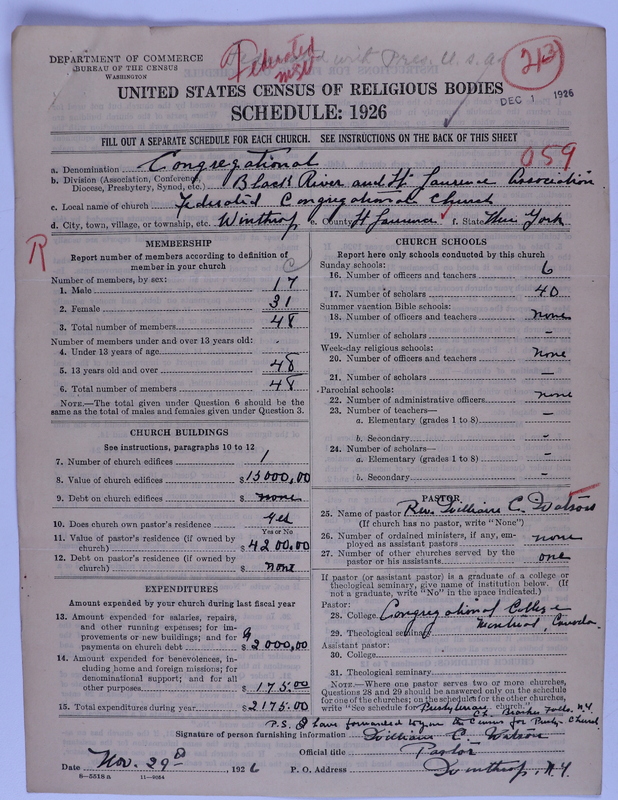 DEPARTMENT OF COMMERCE
BUREAU OF THE CENSUS
WASHINGTON
Federated with Pres. U.S.A.
Federated
213
DEC 1 1926
UNITED STATES CENSUS OF RELIGIOUS BODIES
SCHEDULE: 1926
FILL OUT A SEPARATE SCHEDULE FOR EACH CHURCH. SEE INSTRUCTIONS ON THE BACK OF THIS SHEET
059
a. Denomination Congregational
b. Division (Association, Conference, Diocese, Presbytery, Synod, etc.) Black River and St Laurence Association
c. Local name of church Federated Congregational Church
d. City, town, village, or township, etc. Winthrop e. County St Laurence f. State New York
R
MEMBERSHIP
Report number of members according to definition of
member in your church
C
Number of members, by sex:
1. Male 17
2. Female 31
3. Total number of members 48
Number of members under and over 13 years old:
4. Under 13 years of age -
5. 13 years old and over 48
6. Total number of members 48
NOTE.—The total given under Question 6 should be
the same as the total of males and females given under Question 3.
CHURCH BUILDINGS
See instructions, paragraphs 10 to 12
7. Number of church edifices 1
8. Value of church edifices $15000,00
9. Debt on church edifices $ none
10. Does church own pastor's residence Yes
Yes or No
11. Value of pastor's residence (if owned by
church) $4200,00
12. Debt on pastor's residence (if owned by
church) $ none
EXPENDITURES
Amount expended by your church during last fiscal year
13. Amount expended for salaries, repairs,
and other running expenses; for im-
provements or new buildings; and for
payments on church debt $2000,00
14. Amount expended for benevolences, in-
cluding home and foreign missions; for
denominational support; and for all
other purposes $175.00
15. Total expenditures during year $2175.00
CHURCH SCHOOLS
Report here only schools conducted by this church
Sunday schools:
16. Number of officers and teachers 6
17. Number of scholars 40
Summer vacation Bible schools:
18. Number of officers and teachers none
19. Number of scholars -
Week-day religious schools:
20. Number of officers and teachers none
21. Number of scholars -
Parochial schools:
22. Number of administrative officers none
23. Number of teachers—
a. Elementary (grades 1 to 8) -
b. Secondary -
24. Number of scholars—
a. Elementary (grades 1 to 8) -
b. Secondary -
PASTOR
25. Name of pastor Rev. William C. Watson
(If church has no pastor, write "None")
26. Number of ordained ministers, if any, em-
ployed as assistant pastors none
27. Number of other churches served by the
pastor or his assistants one
If pastor (or assistant pastor) is a graduate of a college or
theological seminary, give name of institution below. (If
not a graduate, write "No" in the space indicated.)
Pastor:
28. College Congregational College
29. Theological seminary Montreal, Canada
Assistant pastor:
30. College
31. Theological seminary
NOTE.—Where one pastor serves two or more churches,
Questions 28 and 29 should be answered only on the schedule
for one of the churches; on the schedules for the other churches,
write "See schedule for Presbyterian church."
Ch. Brasher Falls. N.Y.
P.S. I have forwarded to you the Census for Presby. Church
Signature of person furnishing information William C. Watson
Official title Pastor
Date Nov. 29th, 1926 P. O. Address Winthrop, N.Y.
8—5518a 11—9054